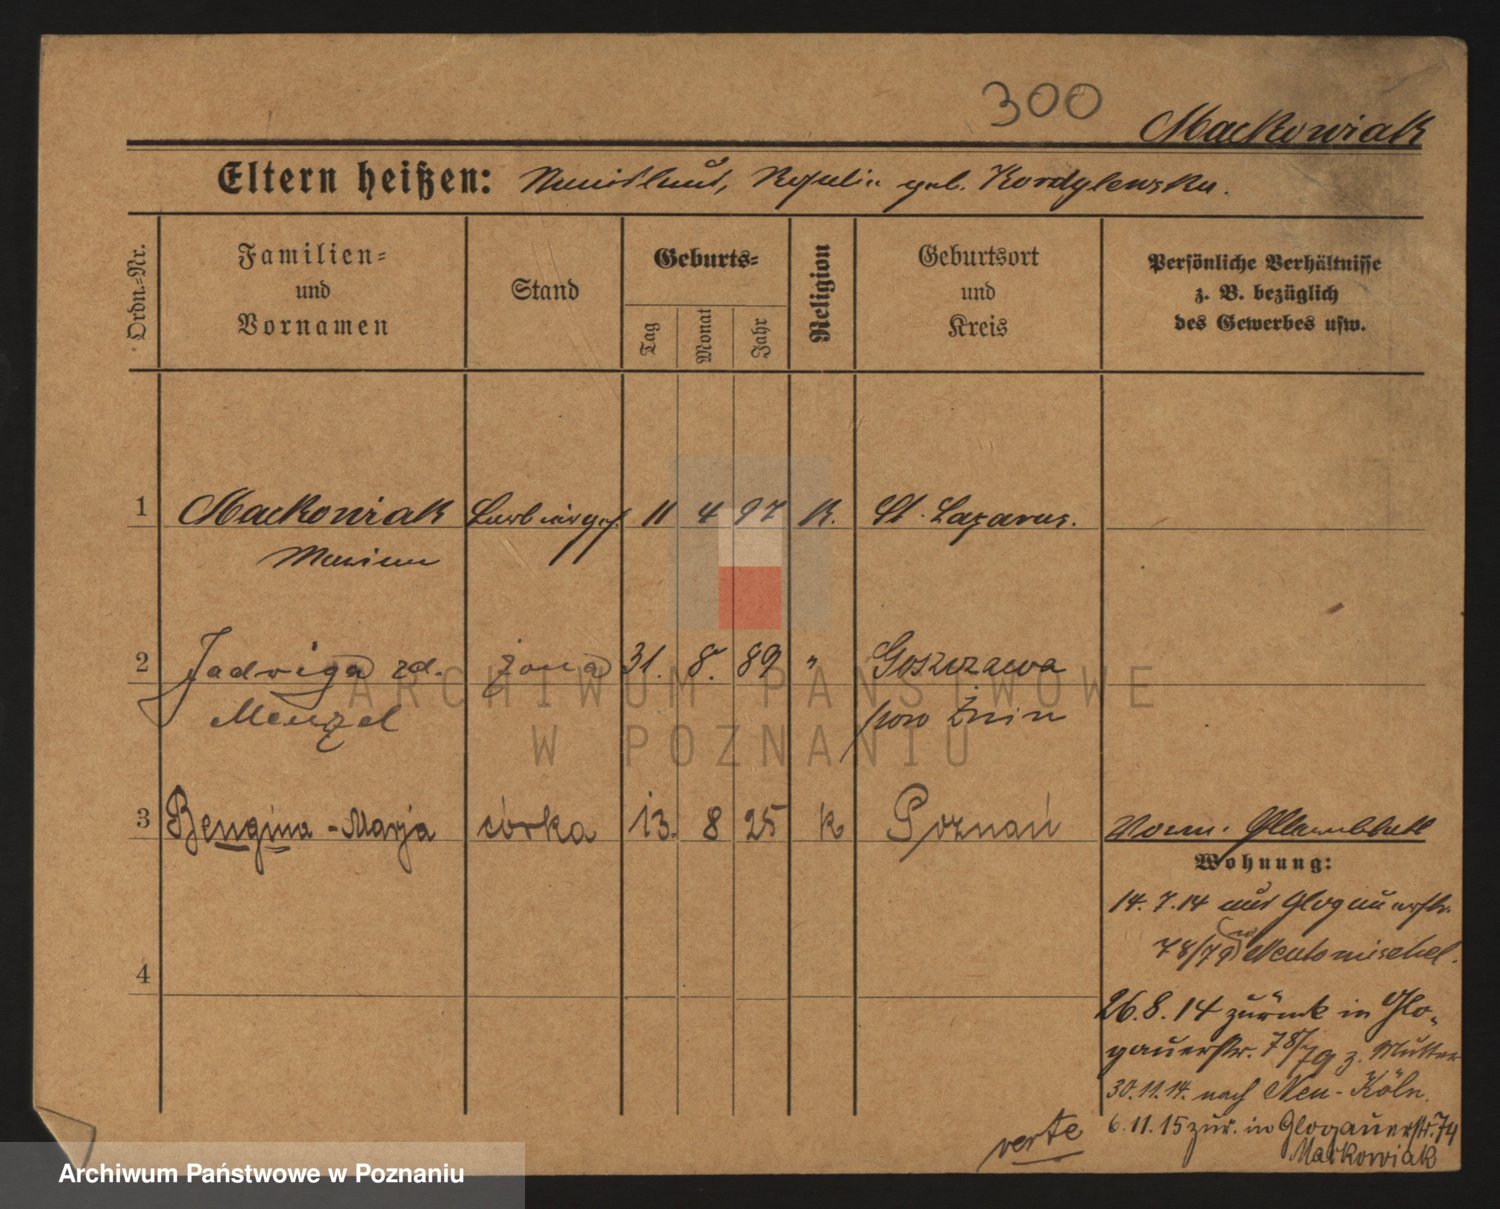 300
Mackowiak
Eltern heißen: geb. Kordylewska.
Ordn.-Nr.
Familien-
und
Vornamen
Stand
Geburts-
Tag
Monat
Jahr
Religion
Geburtsort
und
Kreis
Persönliche Verhältnisse
z. B. bezüglich
des Gewerbes usw.
1 Mackowiak Barbiergeh. 11 4 97 K. St. Lazarus.
Marian
2 Jadwiga zd. żona 31. 8. 89 " Goszczewa
Menzel pow Żnin
3 Bengina-Marja córka 13. 8 25 k Poznań
Wohnung:
14. 7. 14 aus Glogauerstr.
78/79 Neutomischel.
26. 8. 14 zurück in Glo-
gauerstr. 78/79 z. Mutter
30. 11. 14. nach Neu-Köln.
6. 11. 15 zur. in Glogauerstr. 74
Mackowiak
verte
4
ARCHIWUM PAŃSTWOWE
W POZNANIU
Archiwum Państwowe w Poznaniu